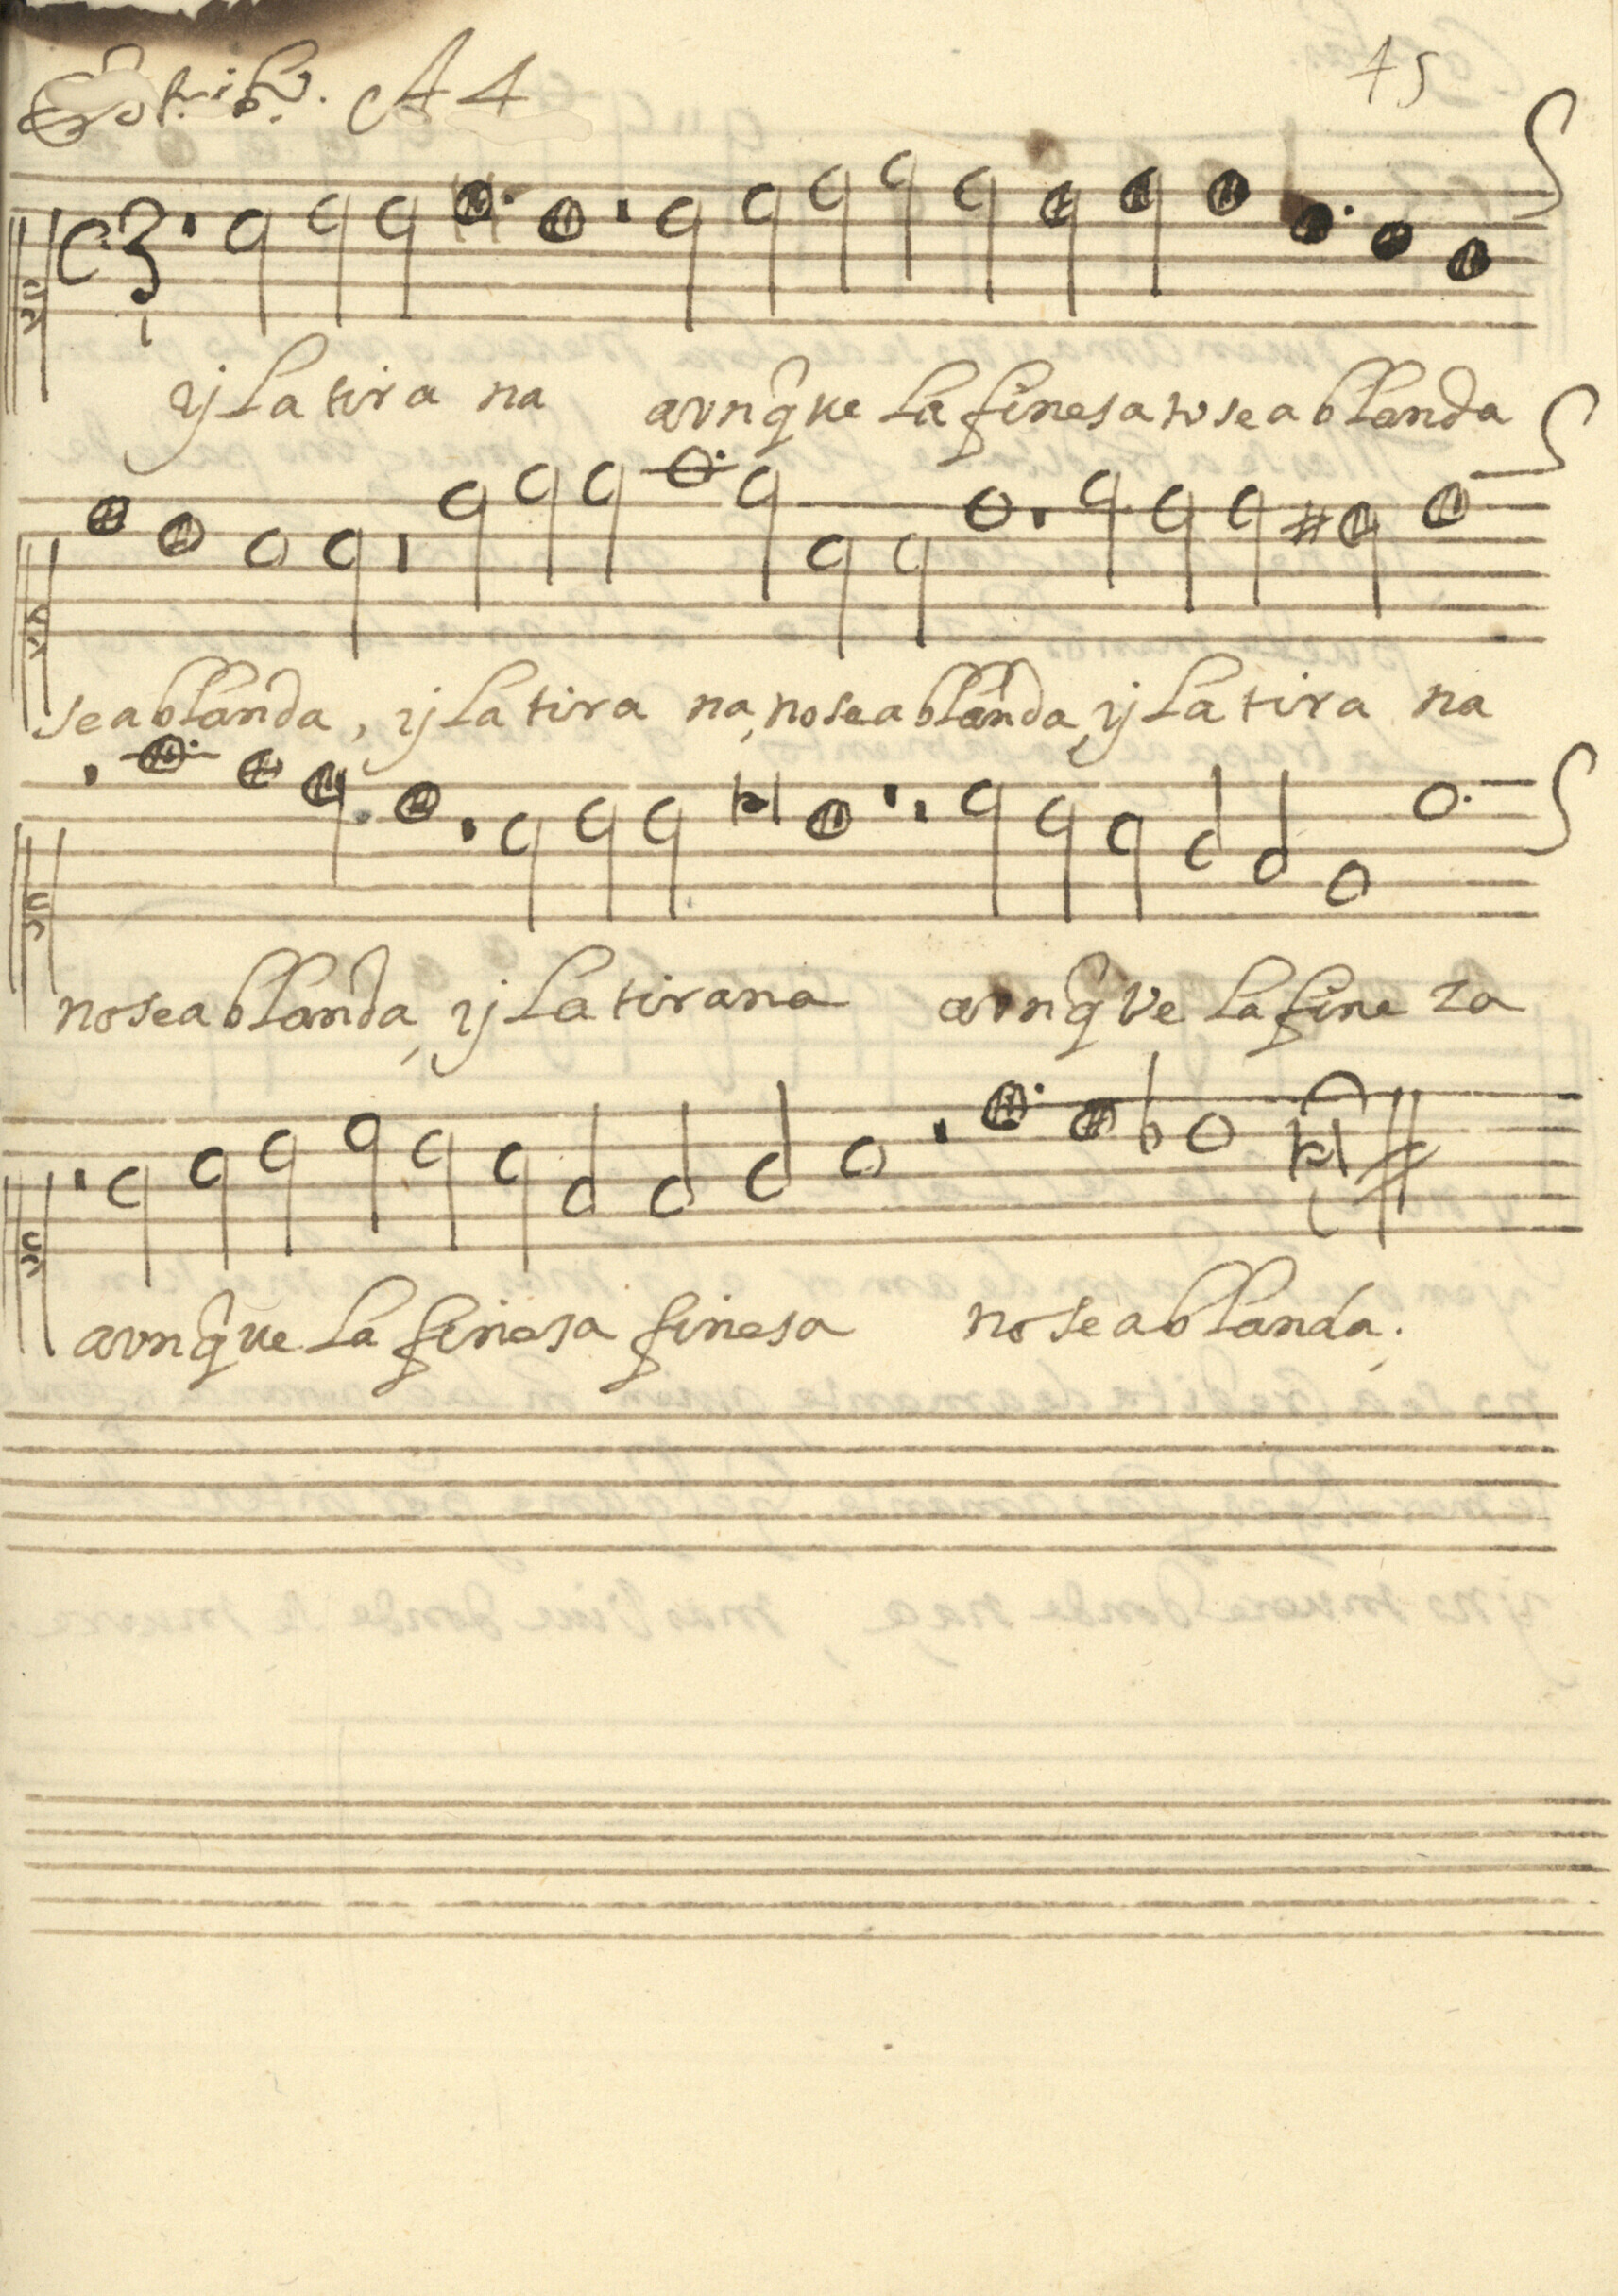 Estribo. A 4 45
y La tirana aunq̃ue La finesa no se ablanda
se ablanda, y La tirana, no se ablanda, y La tirana
no se ablanda, y La tirana aunq̃ue La fineza
aunq̃ue La finesa finesa no se ablanda.